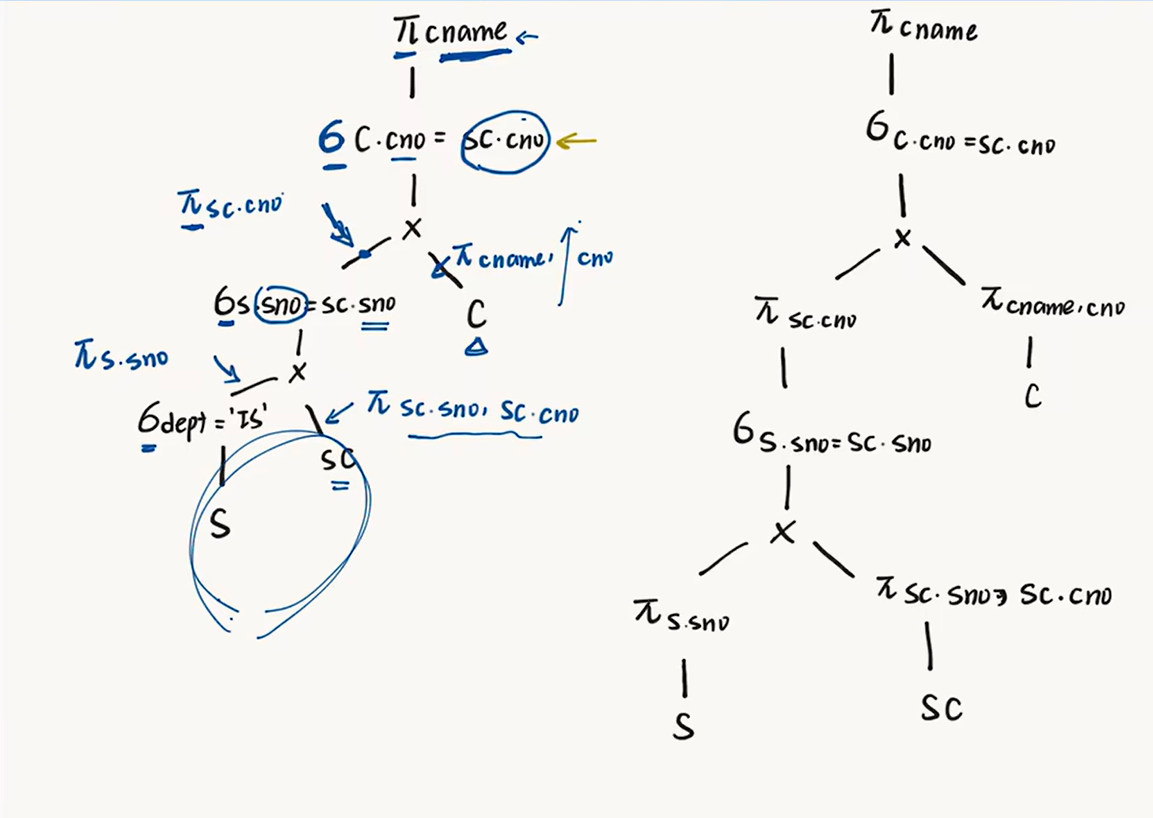 π cname
6 C.cno = SC.cno
π SC.cno
×
π cname, cno
6 S.sno = SC.sno
C
π S.sno
×
6 dept = 'IS'
π SC.sno, SC.cno
SC
S
π cname
6 C.cno = SC.cno
×
π SC.cno
π cname, cno
C
6 S.sno = SC.sno
×
π S.sno
π SC.sno, SC.cno
S
SC